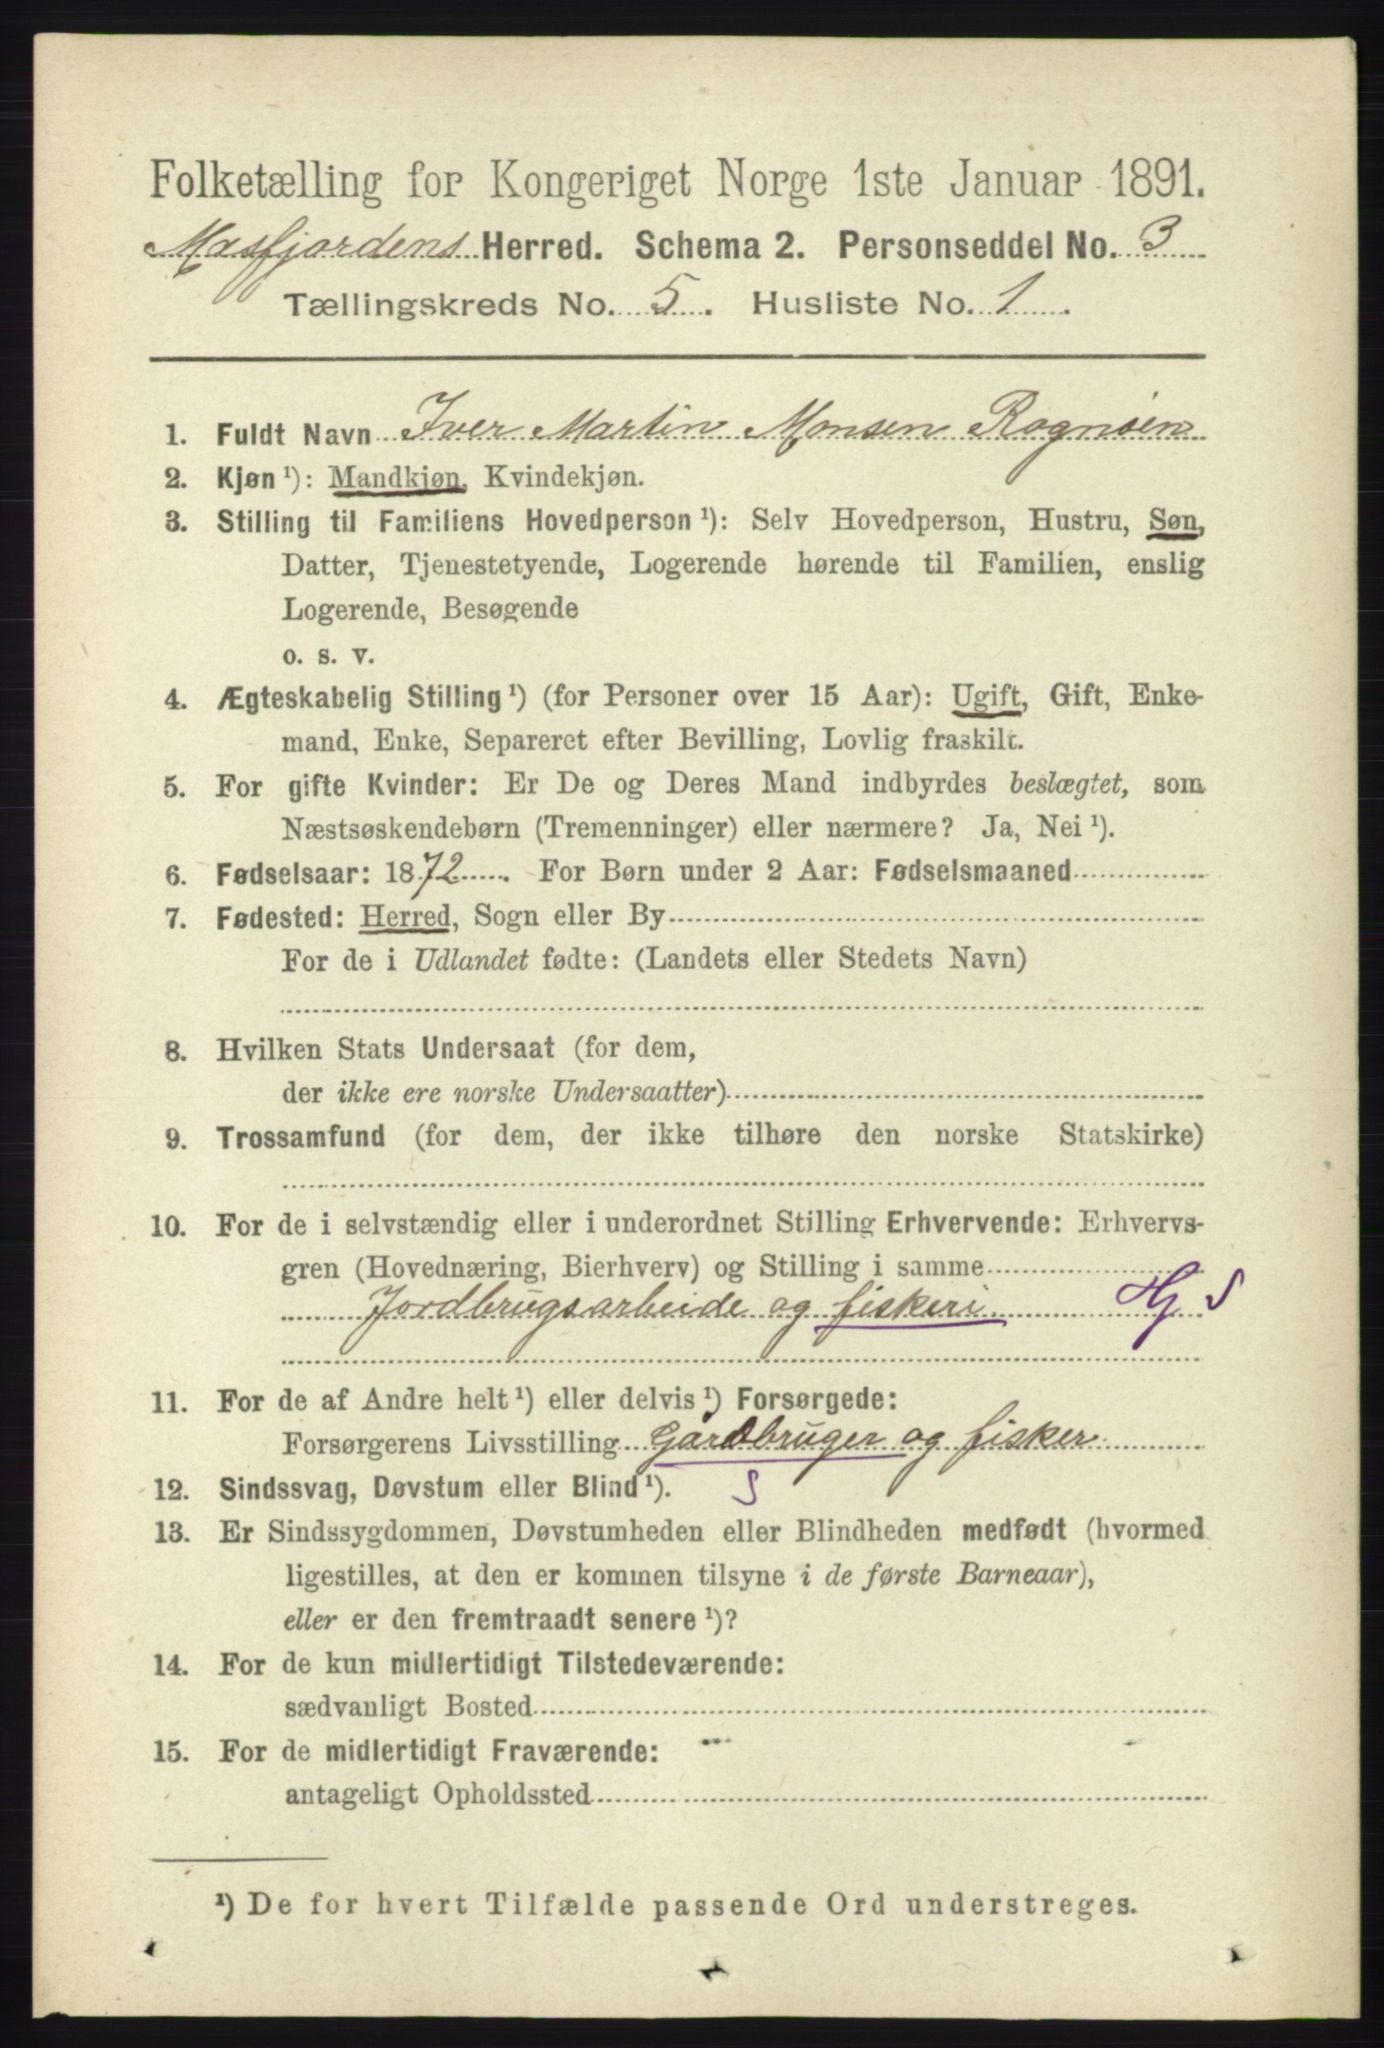 Folketælling for Kongeriget Norge 1ste Januar 1891.
Masfjordens Herred. Schema 2. Personseddel No. 3
Tællingskreds No. 5. Husliste No. 1.
1. Fuldt Navn Iver Martin Monsen Rognøen
2. Kjøn ¹): Mandkjøn, Kvindekjøn.
3. Stilling til Familiens Hovedperson ¹): Selv Hovedperson, Hustru, Søn,
Datter, Tjenestetyende, Logerende hørende til Familien, enslig
Logerende, Besøgende
o. s. v.
4. Ægteskabelig Stilling ¹) (for Personer over 15 Aar): Ugift, Gift, Enke-
mand, Enke, Separeret efter Bevilling, Lovlig fraskilt.
5. For gifte Kvinder: Er De og Deres Mand indbyrdes beslægtet, som
Næstsøskendebørn (Tremenninger) eller nærmere? Ja, Nei ¹).
6. Fødselsaar: 1872. For Børn under 2 Aar: Fødselsmaaned
7. Fødested: Herred, Sogn eller By
For de i Udlandet fødte: (Landets eller Stedets Navn)
8. Hvilken Stats Undersaat (for dem,
der ikke ere norske Undersaatter)
9. Trossamfund (for dem, der ikke tilhøre den norske Statskirke)
10. For de i selvstændig eller i underordnet Stilling Erhvervende: Erhvervs-
gren (Hovednæring, Bierhverv) og Stilling i samme
Jordbrugsarbeide og fiskeri Hj S
11. For de af Andre helt ¹) eller delvis ¹) Forsørgede:
Forsørgerens Livsstilling Gårdbruger og fisker
12. Sindssvag, Døvstum eller Blind ¹). S
13. Er Sindssygdommen, Døvstumheden eller Blindheden medfødt (hvormed
ligestilles, at den er kommen tilsyne i de første Barneaar),
eller er den fremtraadt senere ¹)?
14. For de kun midlertidigt Tilstedeværende:
sædvanligt Bosted
15. For de midlertidigt Fraværende:
antageligt Opholdssted
¹) De for hvert Tilfælde passende Ord understreges.